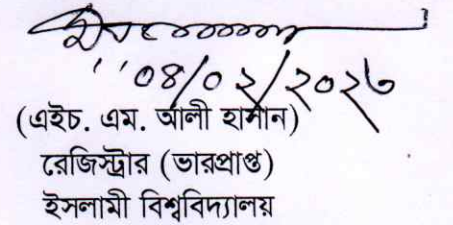 ০৪/০২/২০২৩
(এইচ. এম. আলী হাসান)
রেজিস্ট্রার (ভারপ্রাপ্ত)
ইসলামী বিশ্ববিদ্যালয়